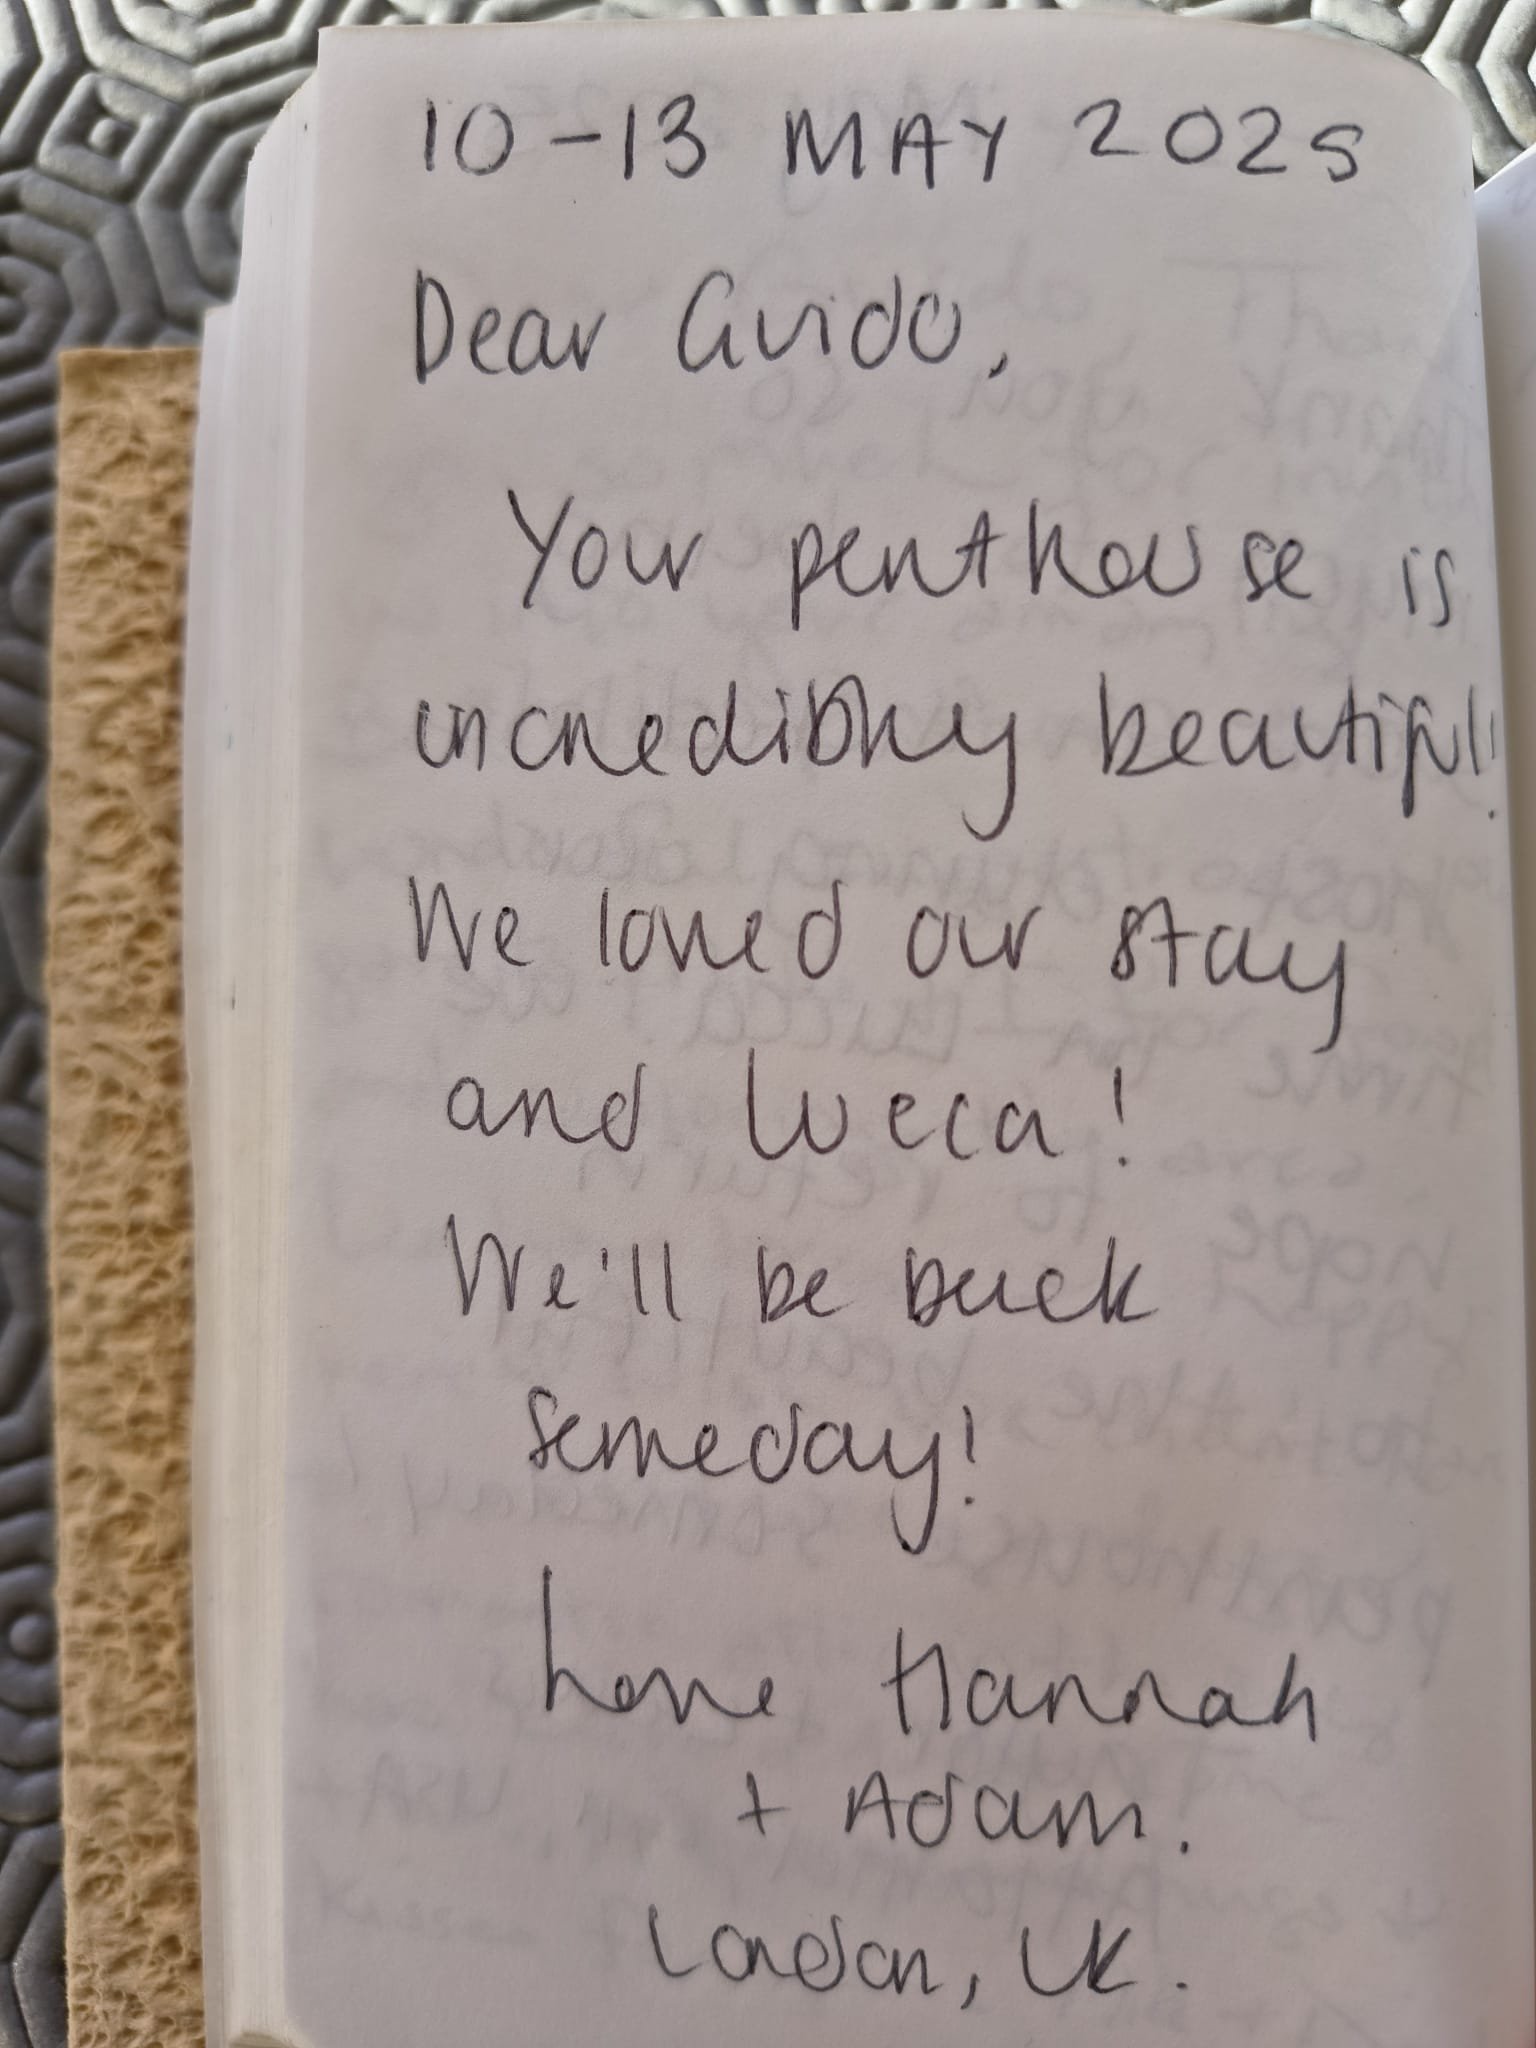 10-13 MAY 2025
Dear Guido,
Your penthouse is
incredibly beautiful!
We loved our stay
and Lucca!
We'll be back
someday!
Love Hannah
+ Adam.
London, UK.